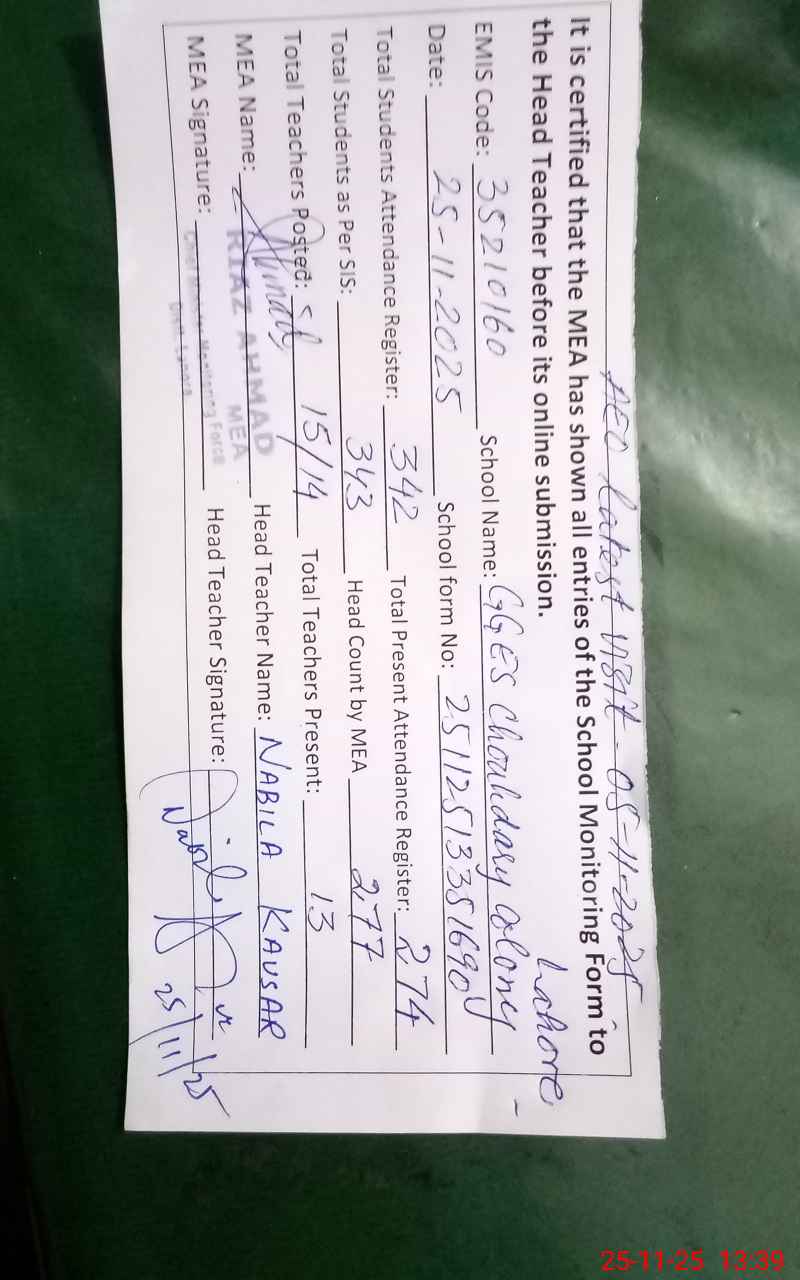 AEO Latest Visit - 05-11-2025
It is certified that the MEA has shown all entries of the School Monitoring Form to
the Head Teacher before its online submission.
Lahore -
EMIS Code: 35210160 School Name: GGES Chouhdary Colony
Date: 25-11-2025 School form No: 25112513351690
Total Students Attendance Register: 342 Total Present Attendance Register: 274
Total Students as Per SIS: 343 Head Count by MEA 277
Total Teachers Posted: 15/14 Total Teachers Present: 13
MEA Name: Head Teacher Name: NABILA KAUSAR
RIAZ AHMAD
MEA
MEA Signature: Head Teacher Signature:
Chief Minister Monitoring Force
Distt. Lahore
25/11/25
25-11-25 13:39